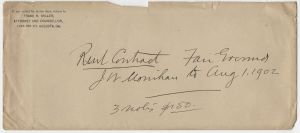 If not called for within days, return to
FRANK H. MILLER,
ATTORNEY AND COUNSELLOR,
AUGUSTA, GA.
Rent Contract Fair Ground
J W Monihan to Aug 1. 1902
3 notes $150.